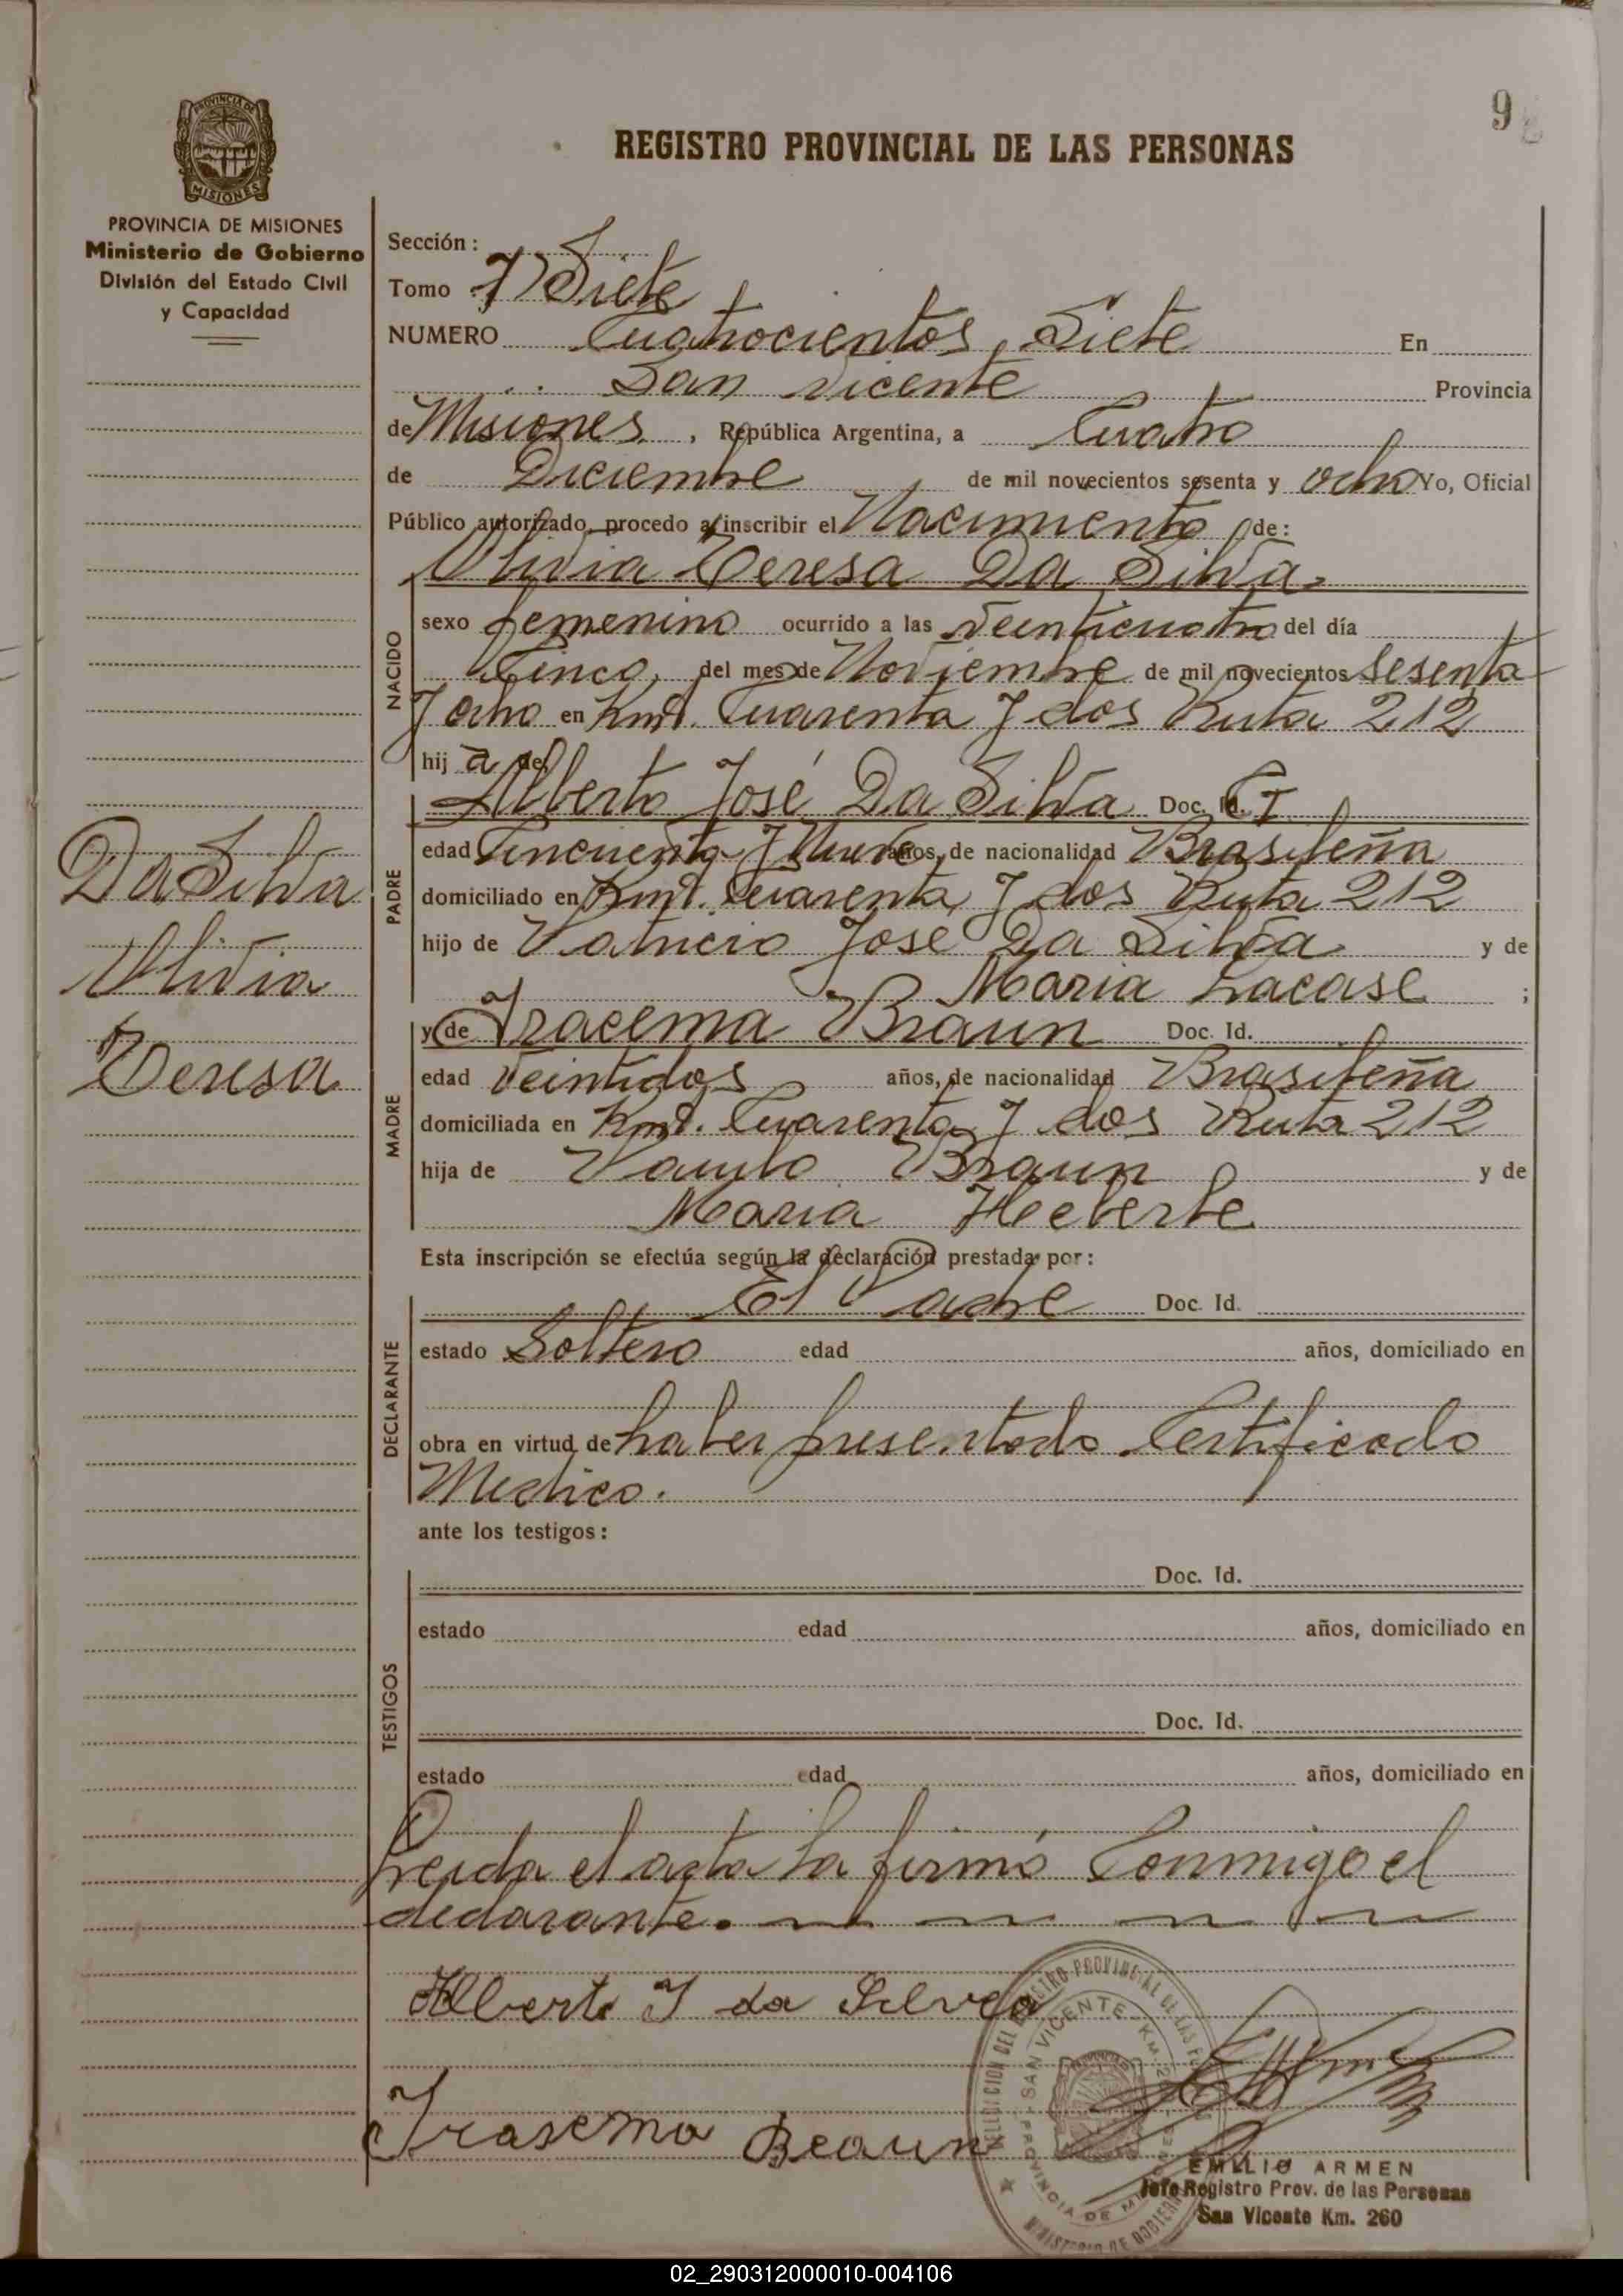 9
PROVINCIA DE
MISIONES
REGISTRO PROVINCIAL DE LAS PERSONAS
PROVINCIA DE MISIONES
Ministerio de Gobierno
División del Estado Civil
y Capacidad
Sección:
Tomo 7 Siete
NUMERO Cuatrocientos Siete En
San Vicente Provincia
de Misiones, República Argentina, a Cuatro
de Diciembre de mil novecientos sesenta y ocho Yo, Oficial
Público autorizado, procedo a inscribir el Nacimiento de:
Olivia Teresa Da Silva
NACIDO
sexo femenino ocurrido a las veinticuatro del día
Cinco, del mes de Noviembre de mil novecientos Sesenta
y ocho en Kmt. Cuarenta y dos Ruta 212
hij a de
PADRE
Alberto José Da Silva Doc. Id. CI
edad Cincuenta y Nueve años, de nacionalidad Brasileña
domiciliado en Kmt. Cuarenta y dos Ruta 212
hijo de Patricio José Da Silva y de
Maria Lacase ;
MADRE
y de Iracema Braun Doc. Id.
edad Veintidos años, de nacionalidad Brasileña
domiciliada en Kmt. Cuarenta y dos Ruta 212
hija de Paulo Braun y de
Maria Heberle
Da Silva
Olivia
Teresa
Esta inscripción se efectúa según la declaración prestada por:
DECLARANTE
El Padre Doc. Id.
estado Soltero edad años, domiciliado en
obra en virtud de haber presentado Certificado
Medico.
ante los testigos:
TESTIGOS
Doc. Id.
estado edad años, domiciliado en
Doc. Id.
estado edad años, domiciliado en
Leida el acta la firmó Conmigo el
declarante.
Alberto J da Silvea
Irasema Beaun
SAN VICENTE - KM. 260
PROVINCIA DE MISIONES
EMILIO ARMEN
Jefe Registro Prov. de las Personas
San Vicente Km. 260
02_290312000010-004106